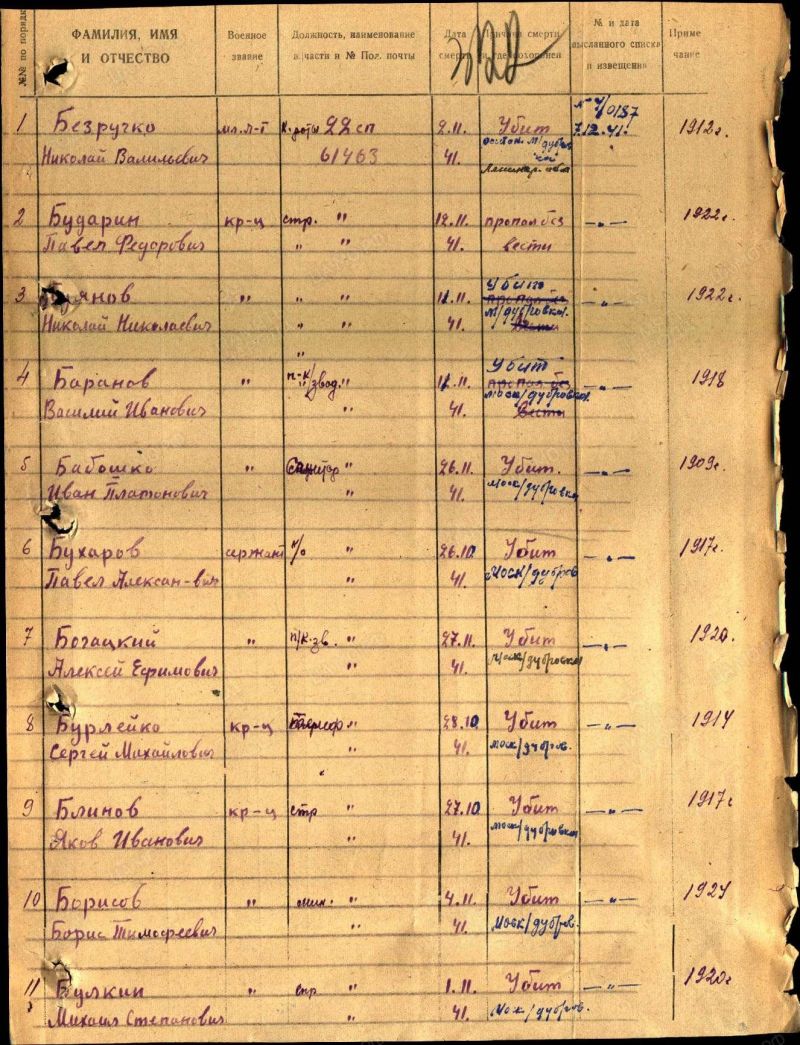 №№ по порядку
ФАМИЛИЯ, ИМЯ И ОТЧЕСТВО
Военное звание
Должность, наименование части и № Пол. почты
Дата смерти
Причина смерти и где похоронен
№ и дата высланного списка и извещения
Примечание
1 Безручко мл. л-т К. роты 22 сп 2.11. Убит 7.12.41. 1912г.
Николай Васильевич 61463 41.
2 Бударин кр-ц стр. " 12.11. пропал без —„— 1922г.
Павел Федорович " " 41. вести
3 " " " 11.11. Убит —„— 1922г.
Николай Николаевич " " 41. М/дубровка.
4 Баранов " " 11.11. Убит пропал без —„— 1918
Василий Иванович " 41. моск/дубровка. вести
5 Бабошко " " 26.11. Убит. —„— 1909г.
Иван Платонович " 41. моск/дубровка
6 Бухаров сержант " 26.10 Убит —„— 1917г.
Павел Алексан-вич " 41. Моск/дубров
7 Богацкий " п/к. зв. " 27.11. Убит —„— 1920.
Алексей Ефимович " 41. Моск/дубровка
8 Бурлейко кр-ц " 28.10 Убит —„— 1914
Сергей Михайлович " 41. моск/дубров.
9 Блинов кр-ц стр " 27.10 Убит —„— 1917г
Яков Иванович " 41. моск/дубровка
10 Борисов " мин. " 4.11. Убит —„—
Борис Тимофеевич " 41. Моск/дубров.
11 Булкин " стр " 1.11. Убит —„— 1920г
Михаил Степанович " 41. Мок/дубров.